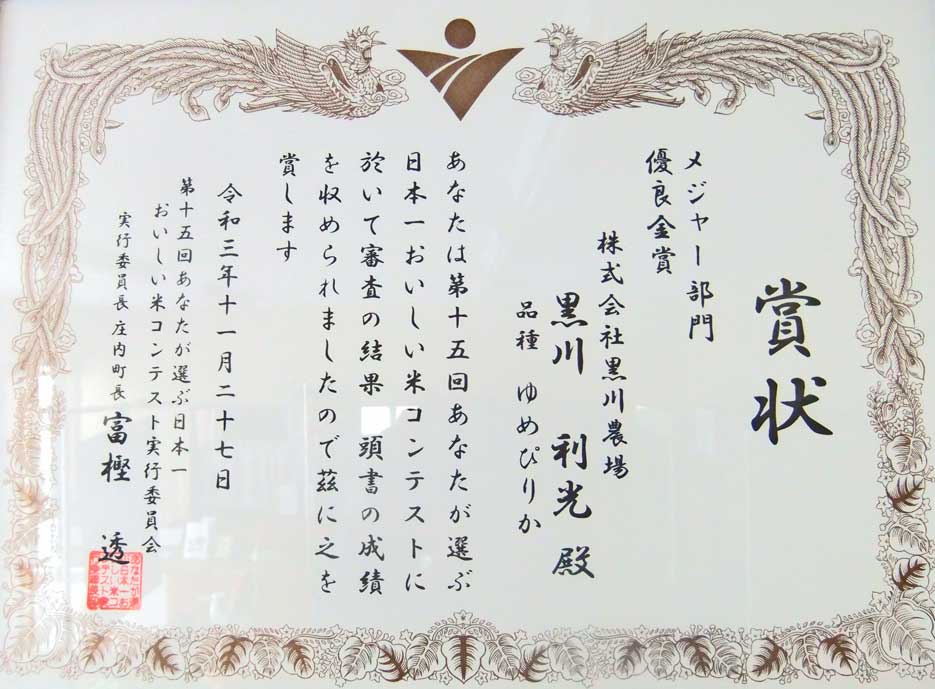 賞状
メジャー部門
優良金賞
株式会社黒川農場
黒川 利光 殿
品種 ゆめぴりか
あなたは第十五回あなたが選ぶ
日本一おいしい米コンテストに
於いて審査の結果 頭書の成績
を収められましたので茲に之を
賞します
令和三年十一月二十七日
第十五回あなたが選ぶ日本一
おいしい米コンテスト実行委員会
実行委員長 庄内町長 富樫 透